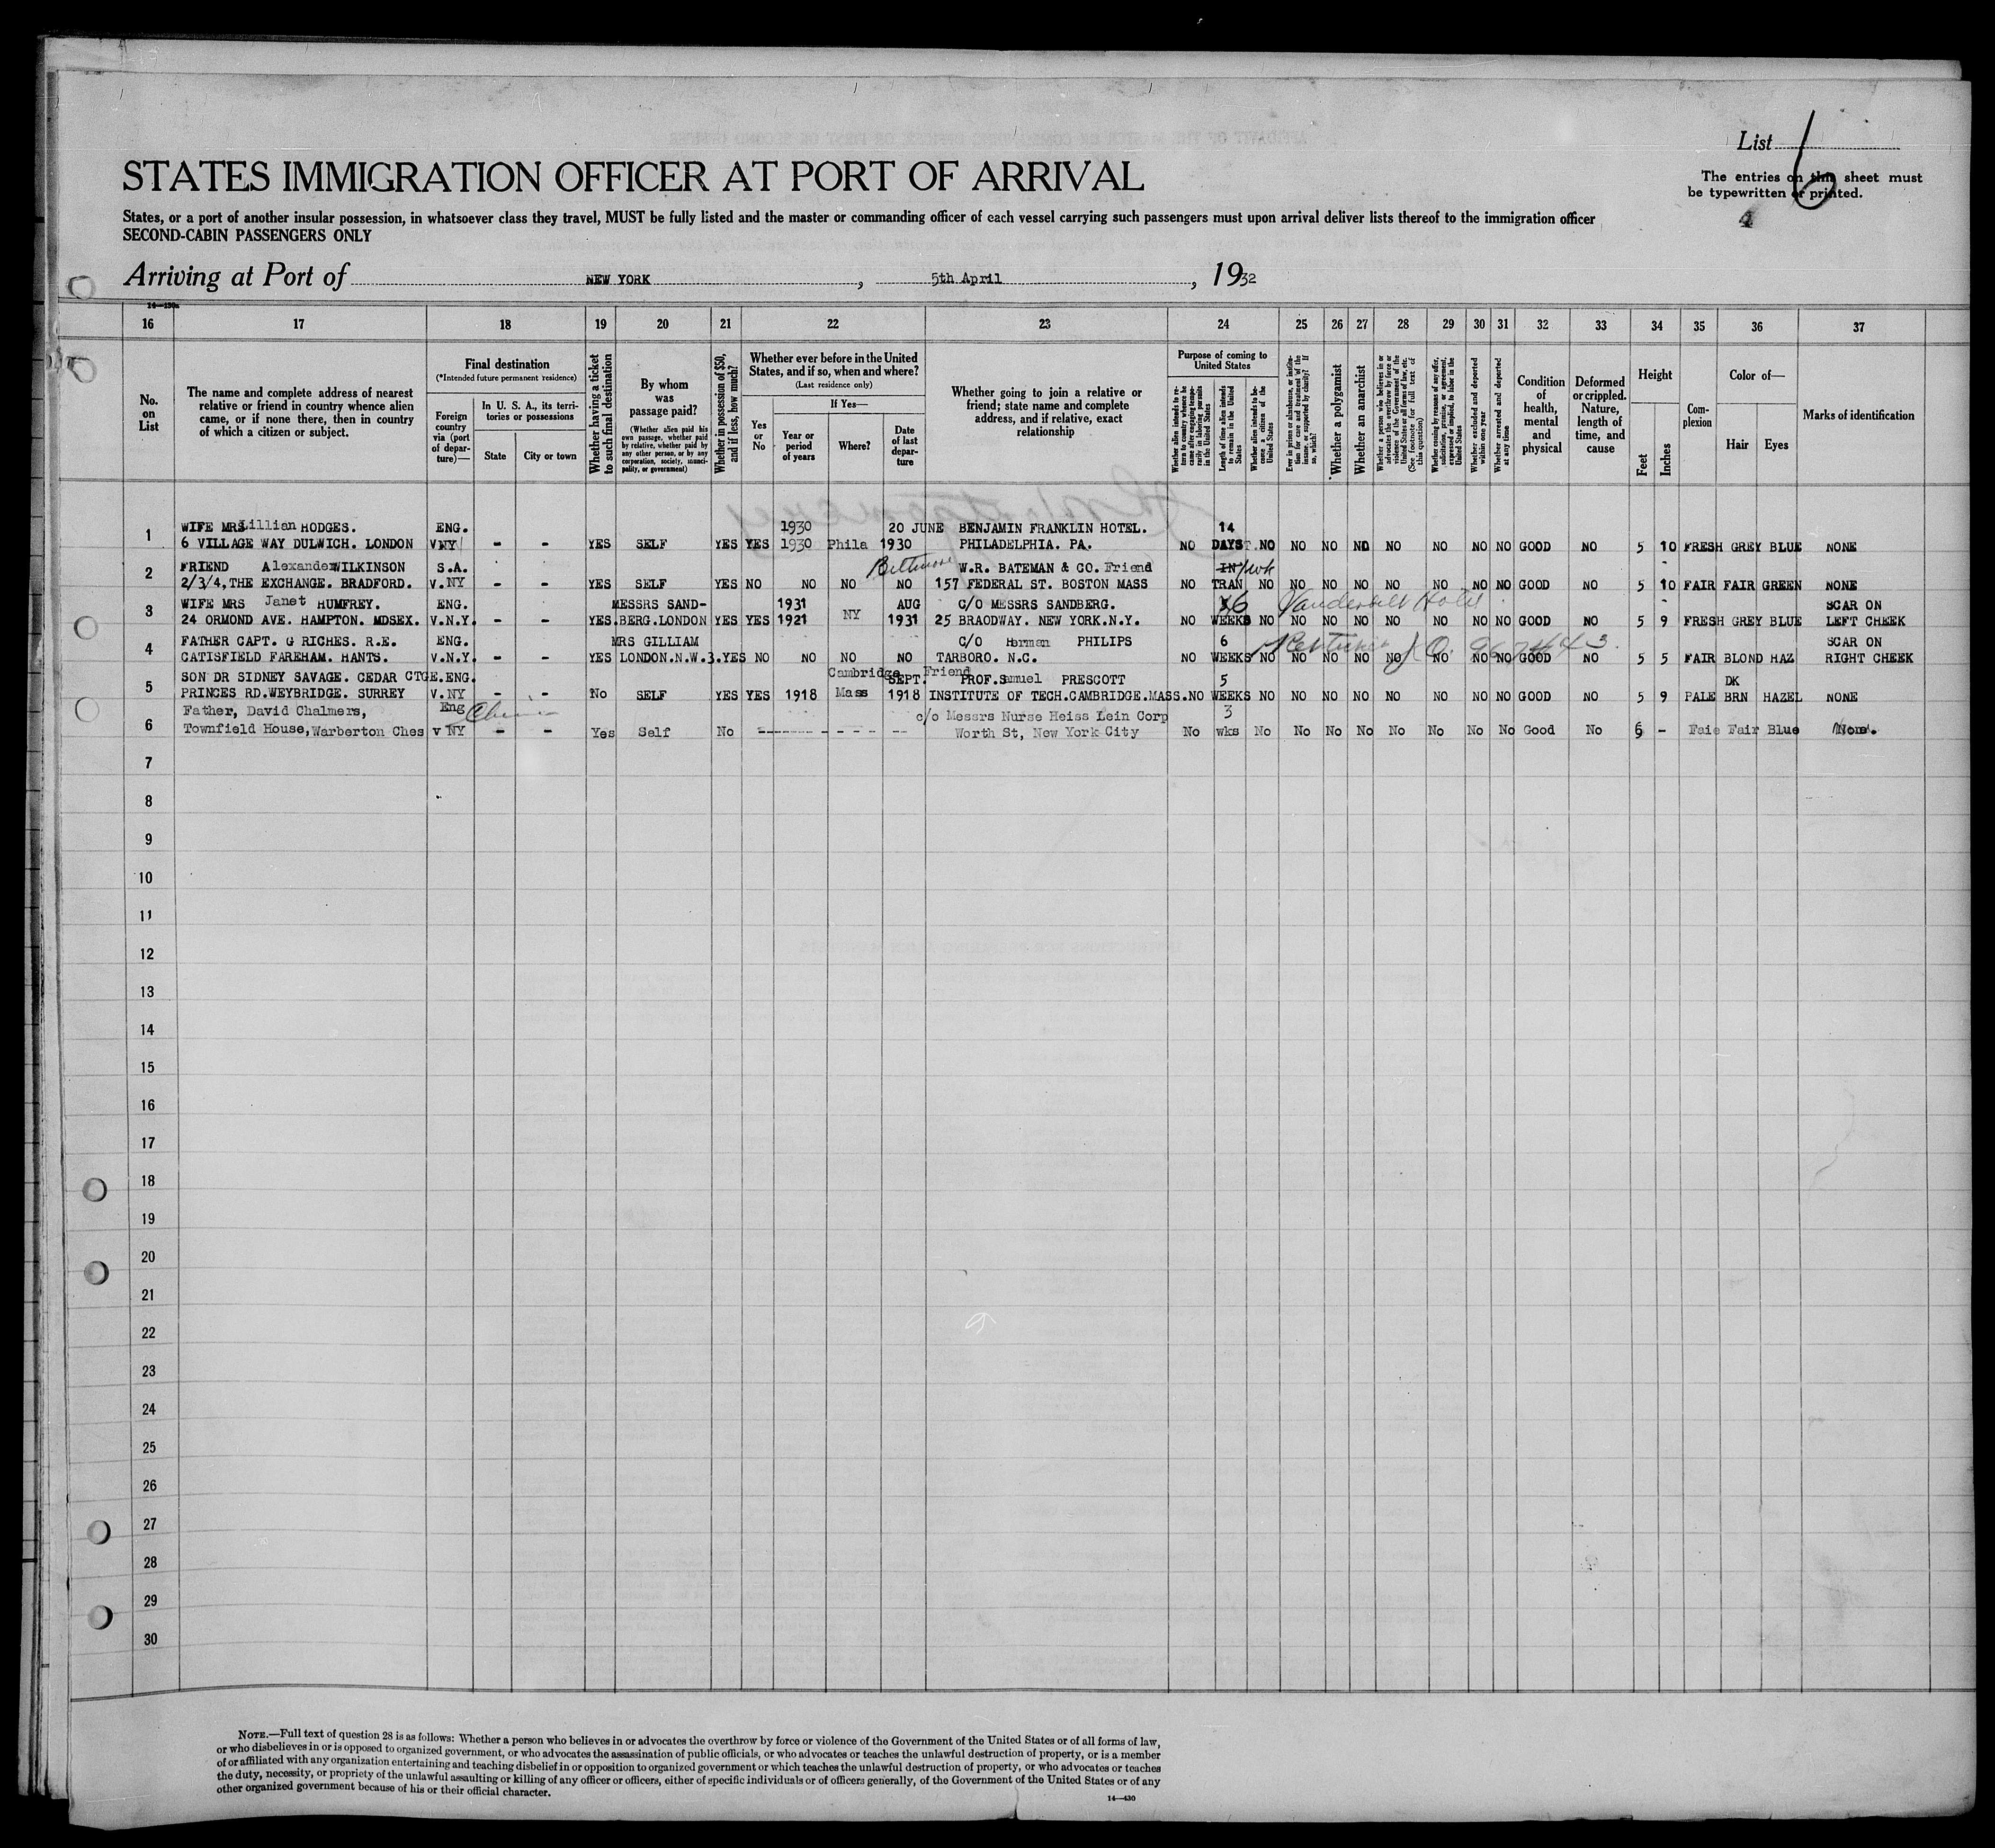 List 6
The entries on this sheet must
be typewritten or printed.
4
STATES IMMIGRATION OFFICER AT PORT OF ARRIVAL
States, or a port of another insular possession, in whatsoever class they travel, MUST be fully listed and the master or commanding officer of each vessel carrying such passengers must upon arrival deliver lists thereof to the immigration officer
SECOND-CABIN PASSENGERS ONLY
Arriving at Port of NEW YORK, 5th April, 1932
14—430a
16 17 18 19 20 21 22 23 24 25 26 27 28 29 30 31 32 33 34 35 36 37
No. on List
The name and complete address of nearest relative or friend in country whence alien came, or if none there, then in country of which a citizen or subject.
Final destination
(*Intended future permanent residence)
Foreign country via (port of departure)—
In U. S. A., its territories or possessions
State
City or town
Whether having a ticket to such final destination
By whom was passage paid?
(Whether alien paid his own passage, whether paid by relative, whether paid by any other person, or by any corporation, society, municipality, or government)
Whether in possession of $50, and if less, how much?
Whether ever before in the United States, and if so, when and where?
(Last residence only)
Yes or No
If Yes—
Year or period of years
Where?
Date of last departure
Whether going to join a relative or friend; state name and complete address, and if relative, exact relationship
Purpose of coming to United States
Whether alien intends to return to country whence he came after engaging temporarily in laboring pursuits in the United States
Length of time alien intends to remain in the United States
Whether alien intends to become a citizen of the United States
Ever in prison or almshouse, or institution for care and treatment of the insane, or supported by charity? If so, which?
Whether a polygamist
Whether an anarchist
Whether a person who believes in or advocates the overthrow by force or violence of the Government of the United States or all forms of law, etc. (See footnote for full text of this question)
Whether coming by reasons of any offer, solicitation, promise, or agreement, expressed or implied, to labor in the United States
Whether excluded and deported within one year
Whether arrested and deported at any time
Condition of health, mental and physical
Deformed or crippled. Nature, length of time, and cause
Height
Feet
Inches
Complexion
Color of—
Hair
Eyes
Marks of identification
WIFE MRS Lillian HODGES. ENG. 1930 20 JUNE BENJAMIN FRANKLIN HOTEL. 14
1 6 VILLAGE WAY DULWICH. LONDON V NY - - YES SELF YES YES 1930 Phila 1930 PHILADELPHIA. PA. NO DAYS NO NO NO NO NO NO NO NO GOOD NO 5 10 FRESH GREY BLUE NONE
FRIEND Alexander WILKINSON S.A. W.R. BATEMAN & CO. Friend IN
2 2/3/4, THE EXCHANGE. BRADFORD. V.NY - - YES SELF YES NO NO NO NO 157 FEDERAL ST. BOSTON MASS NO TRAN NO NO NO NO NO NO NO NO GOOD NO 5 10 FAIR FAIR GREEN NONE
WIFE MRS Janet HUMFREY. ENG. MESSRS SAND- 1931 AUG C/O MESSRS SANDBERG. 6 Vanderbilt Hotel SCAR ON
3 24 ORMOND AVE. HAMPTON. MDSEX. V.N.Y. - - YES. BERG.LONDON YES YES 1921 NY 1931 25 BRAODWAY. NEW YORK.N.Y. NO WEEKS NO NO NO NO NO NO NO NO GOOD NO 5 9 FRESH GREY BLUE LEFT CHEEK
FATHER CAPT. G RICHES. R.E. ENG. MRS GILLIAM C/O Herman PHILIPS 6 SCAR ON
4 CATISFIELD FAREHAM. HANTS. V.N.Y. - - YES LONDON.N.W.3. YES NO NO NO NO TARBORO. N.C. NO WEEKS NO NO NO NO NO NO NO NO GOOD NO 5 5 FAIR BLOND HAZ RIGHT CHEEK
SON DR SIDNEY SAVAGE. CEDAR CTGE. ENG. Cambridge SEPT. Friend PROF.Samuel PRESCOTT 5 DK
5 PRINCES RD.WEYBRIDGE. SURREY V.NY - - No SELF YES YES 1918 Mass 1918 INSTITUTE OF TECH.CAMBRIDGE.MASS. NO WEEKS NO NO NO NO NO NO NO NO GOOD NO 5 9 PALE BRN HAZEL NONE
Father, David Chalmers, Eng c/o Messrs Nurse Heiss Lein Corp 3
6 Townfield House, Warberton Ches v NY - - Yes Self No Worth St, New York City No wks No No No No No No No No Good No 6 - Faie Fair Blue None.
7
8
9
10
11
12
13
14
15
16
17
18
19
20
21
22
23
24
25
26
27
28
29
30
NOTE.—Full text of question 28 is as follows: Whether a person who believes in or advocates the overthrow by force or violence of the Government of the United States or of all forms of law,
or who disbelieves in or is opposed to organized government, or who advocates the assassination of public officials, or who advocates or teaches the unlawful destruction of property, or is a member
of or affiliated with any organization entertaining and teaching disbelief in or opposition to organized government or which teaches the unlawful destruction of property, or who advocates or teaches
the duty, necessity, or propriety of the unlawful assaulting or killing of any officer or officers, either of specific individuals or of officers generally, of the Government of the United States or of any
other organized government because of his or their official character.
14—430